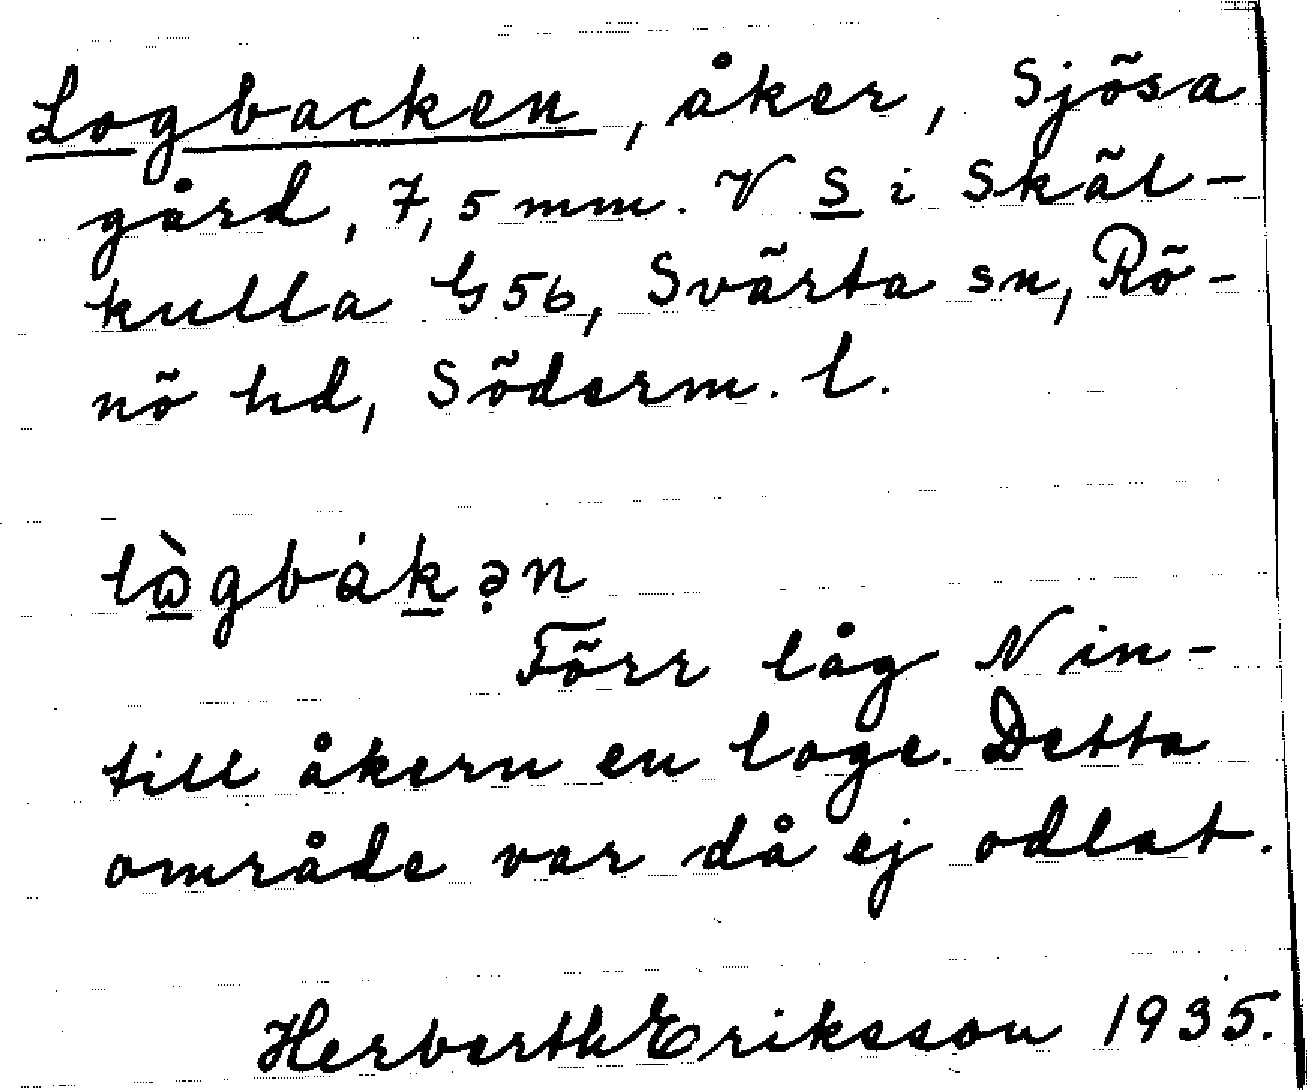 Logbacken, åker, Sjösa
gård, 7,5 mm. V S i Skäl-
kulla G56, Svärta sn, Rö-
nö hd, Söderm. l.
lògbákə̣n
Förr låg N in-
till åkern en loge. Detta
område var då ej odlat.
Herberth Eriksson 1935.